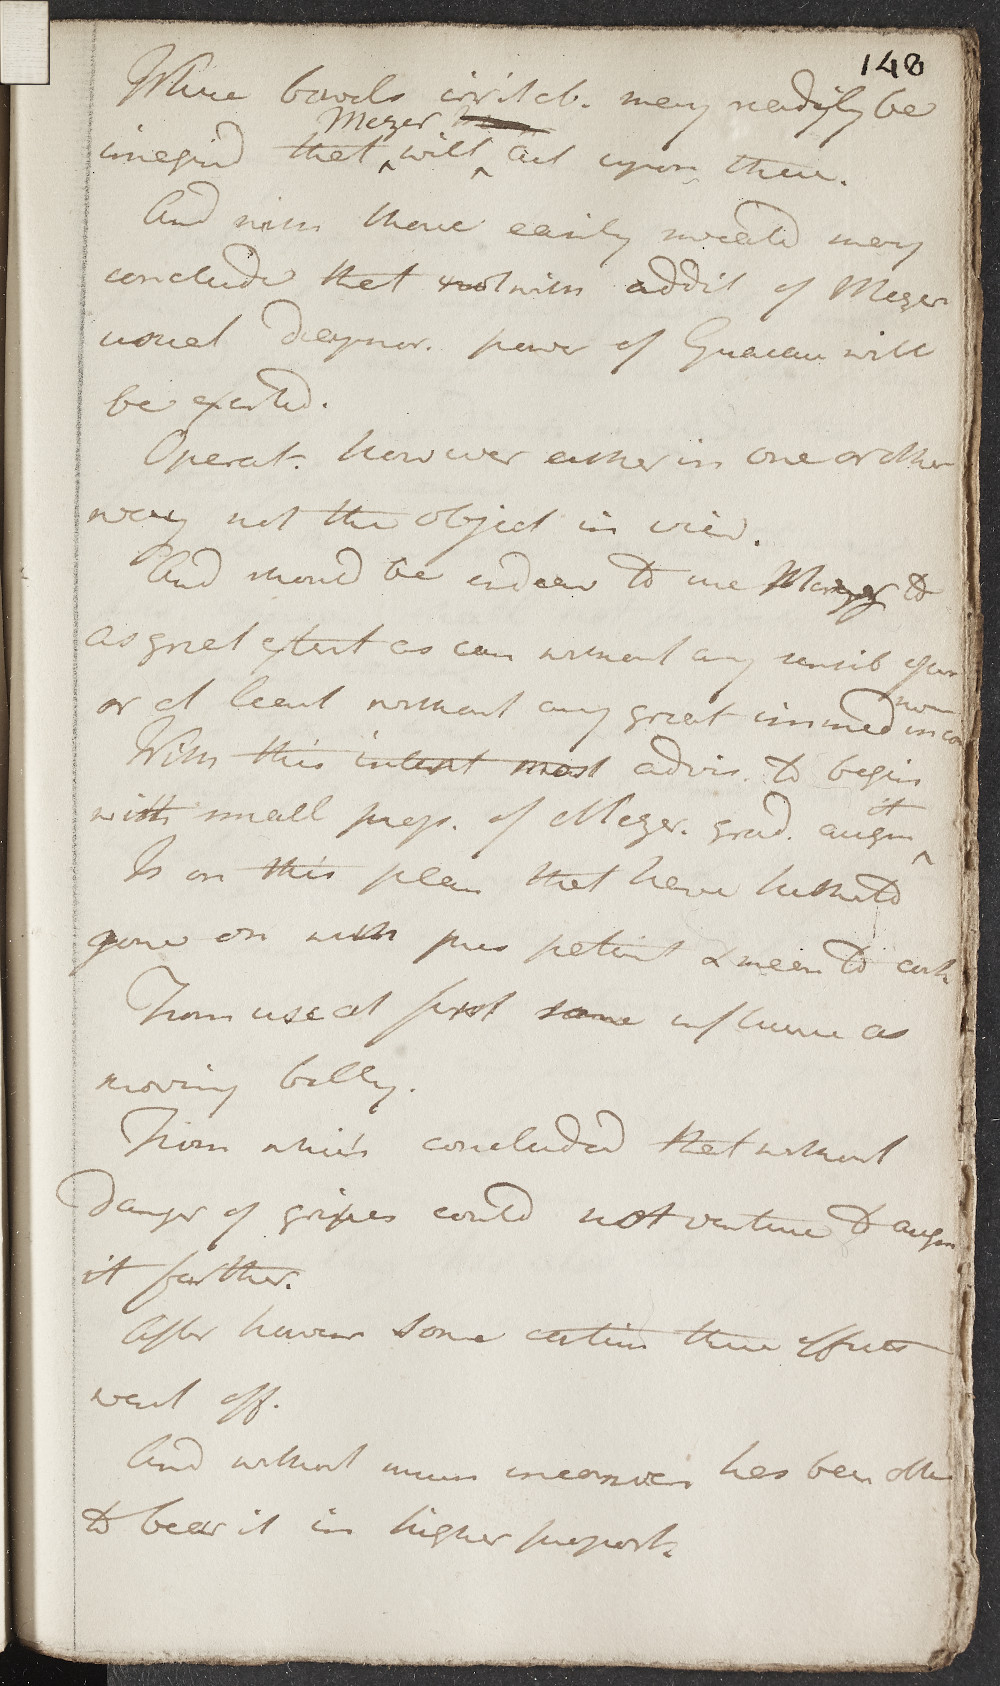 148
Where bowels irritab. may readily be
imagind that Mezer will act upon them.
And with those easily sweatd may
conclude that with addit of Mezer
usual diaphor. power of Guaiac will
be exerted.
Operat. however either in one or other
way not the object in view.
And should be endeav to use Mezer to
as great extent as can without any sensib
or at least without any great immed incon
With this intent most advis. to begin
with small prop. of Mezer. grad. augm it
Is on this plan that have hitherto
gone on with pres patient & mean to
From use at first some influence as
moving belly.
From which concluded that without
danger of gripes could not venture to augm
it farther.
After however some contin these effects
went off.
And without much inconven has been able
to bear it in higher proport.